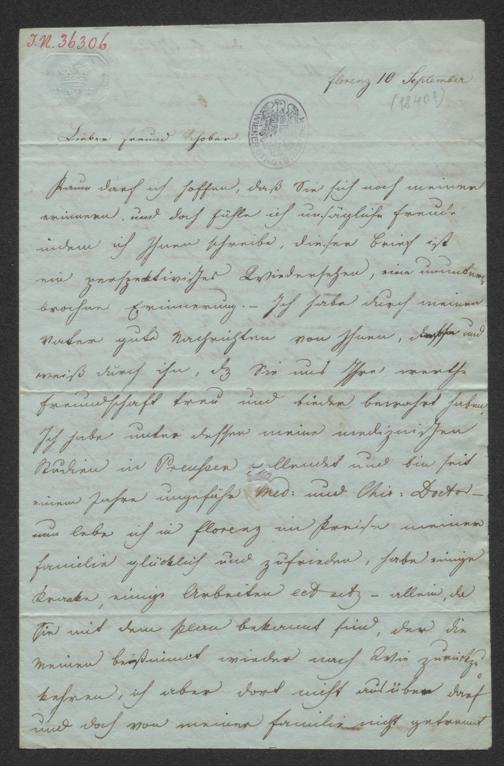 J.N. 36306
Florenz 10 September
(1840?)
Lieber Freund Schober
Kaum darf ich hoffen, daß Sie sich noch meiner
erinnern, und doch fühle ich unsägliche Freude
indem ich Ihnen schreibe, dieser Brief ist
ein perspektivisches Wiedersehen, eine ununter
brochne Erinnerung. – Ich habe durch meinen
Vater gute Nachrichten von Ihnen, und
weiß durch ihn, dß Sie uns Ihre werthe
Freundschaft treu und bieder bewahrt haben.
Ich habe unter dessen meine medizinischen
Studien in Preussen vollendet und bin seit
einem Jahre ungefähr Med: und Chir: Doctor –
nun lebe ich in Florenz im Kreise meiner
Familie glücklich und zufrieden, habe einige
Kranke, einige Arbeiten ect ectz – allein, da
Sie mit dem Plan bekannt sind, der die
Meinen bestimmt wieder nach Wien zurückzu
kehren, ich aber dort nicht ausüben darf
und doch von meiner Familie nicht getrennt